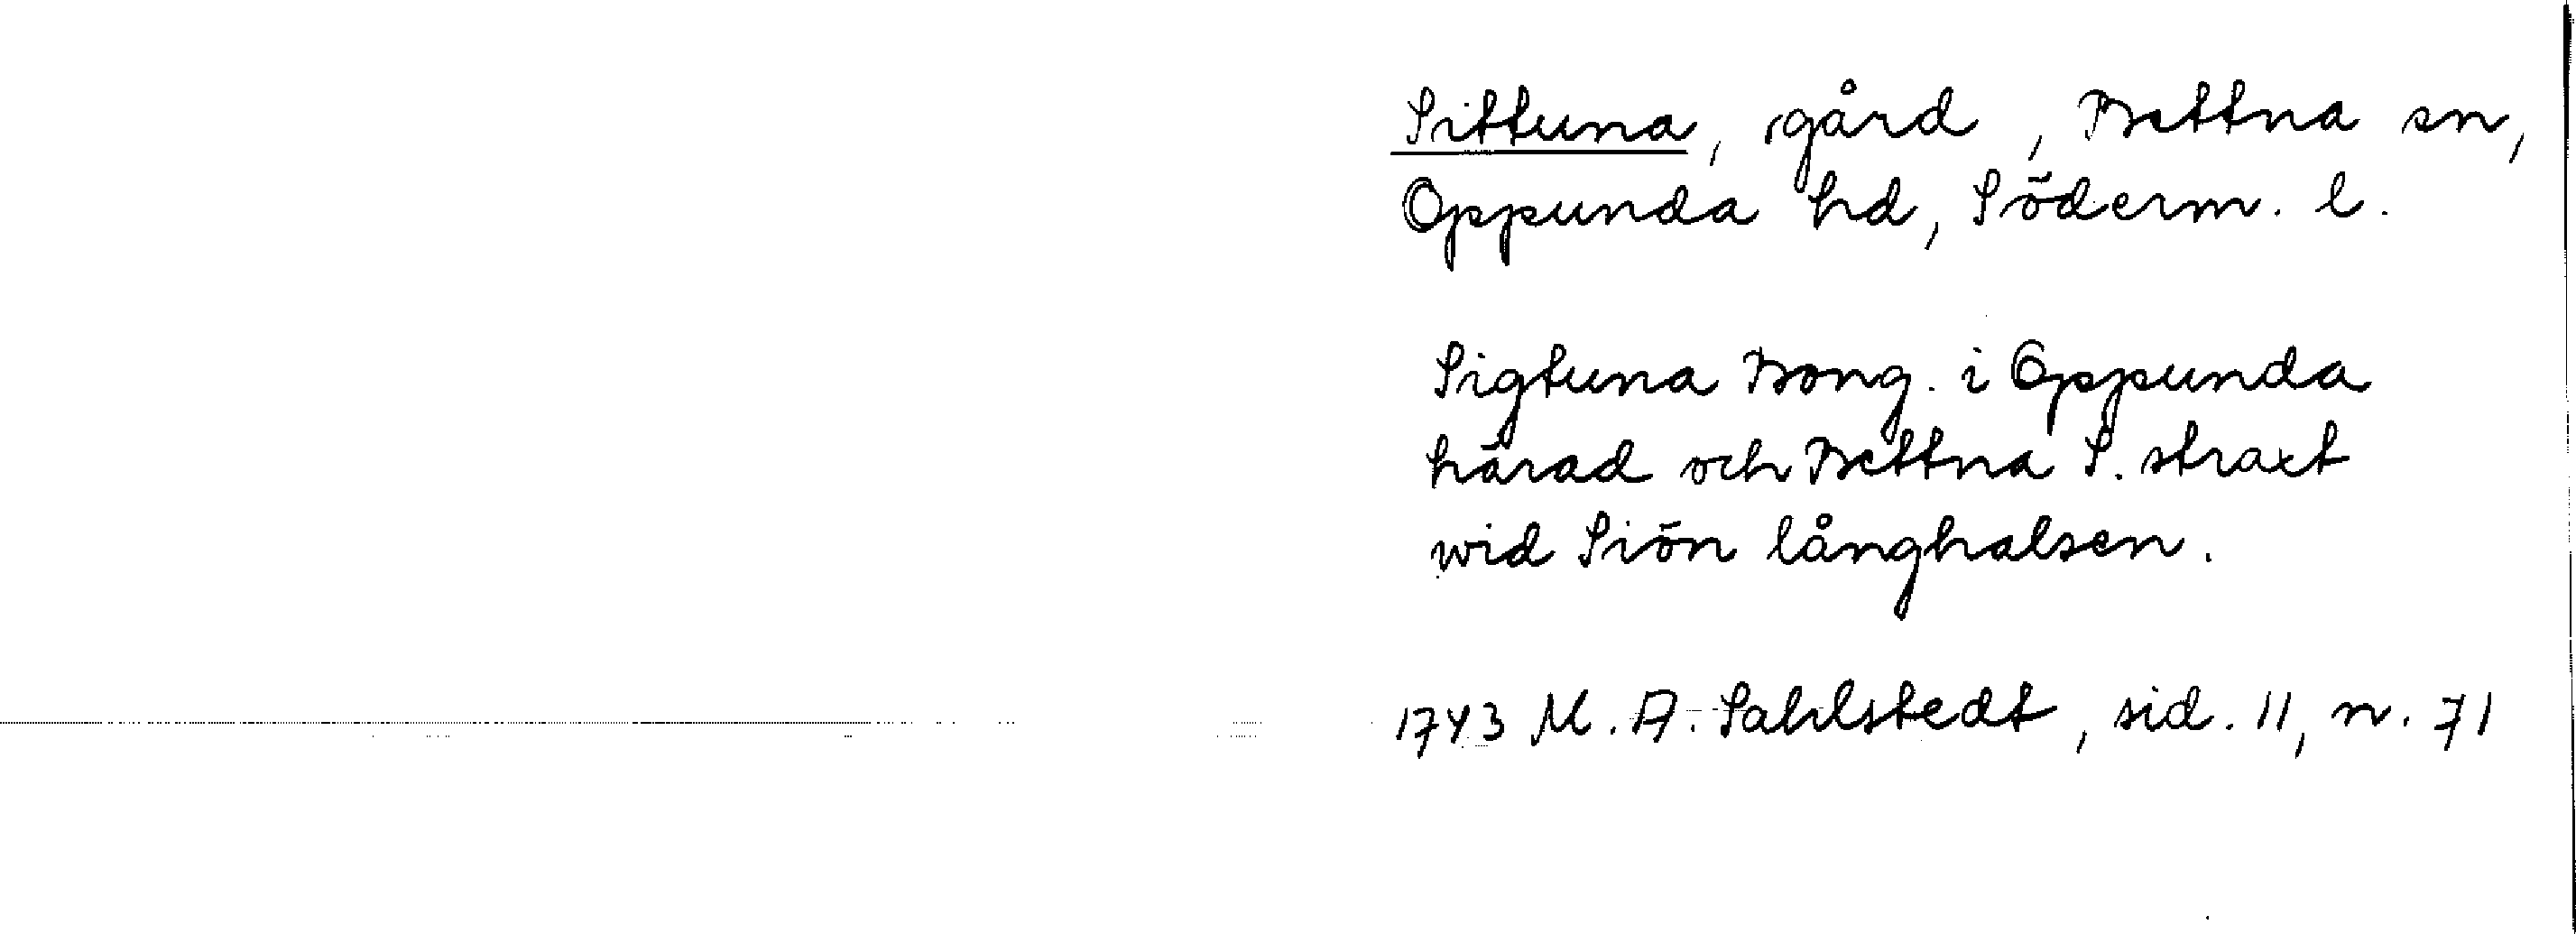 Sittuna, gård, Bettna sn,
Oppunda hd, Söderm. l.
Sigtuna Bong. i Oppunda
härad och Bettna S. straxt
wid Siön långhalsen.
1743 M. A. Sahlstedt, sid. 11, n. 71